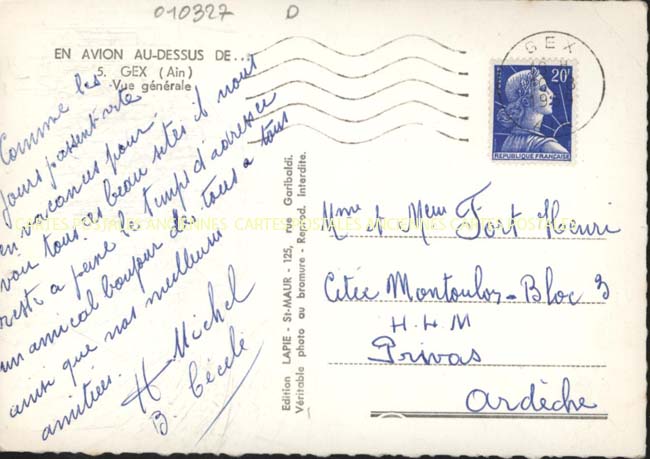 010327 D
EN AVION AU-DESSUS DE...
5. GEX (Ain)
Vue générale
GEX
20F
REPUBLIQUE FRANÇAISE
Comme les
jours passent vite
en vacances pour
voir tous ces beau sites il nous
reste a peine le temps d'adresser
un amical bonjour de tous a tous
ainsi que nos meilleures
amitiées.
H Michel
B. Cécile
Edition LAPIE - St-MAUR - 125, rue Garibaldi.
Véritable photo au bromure - Reprod. Interdite.
Mme et Meur Fort Henri
Citée Montoulon-Bloc 3
H.L.M
Privas
Ardèche
CARTES POSTALES ANCIENNES CARTES POSTALES ANCIENNES CARTES POSTALES